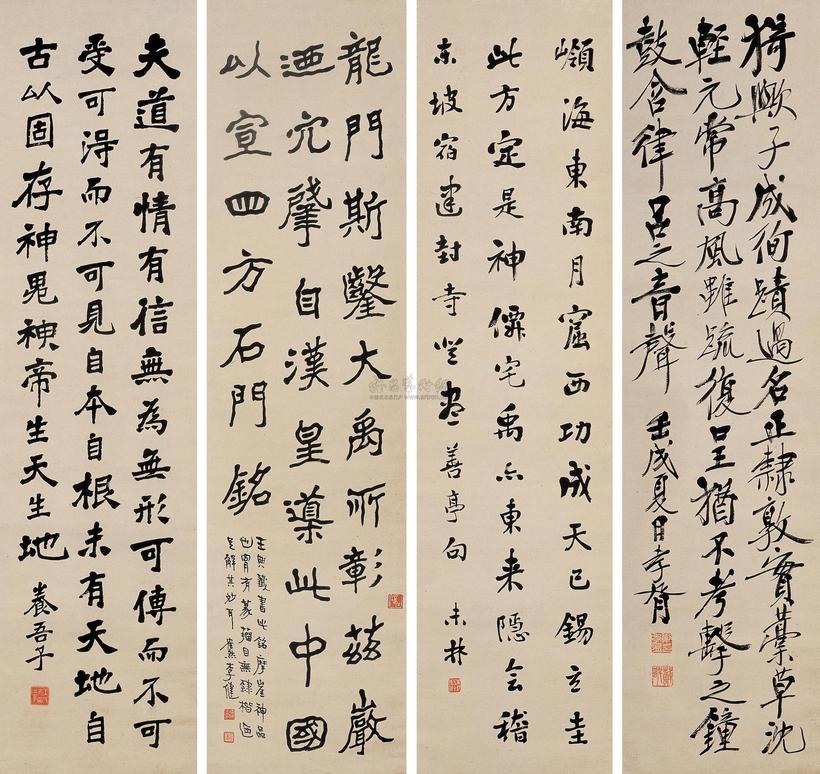 猗歟子成徇蹟過名正隸敦實藁草沈
輕元常高風雖疏復呈猶不考擊之鐘
鼓含律呂之音聲 壬戌夏日孝胥
嶺海東南月窟西功成天已錫玄圭
此方定是神僊宅禹亦東来隱會稽
东坡宿建封寺登盡善亭句 未林
龍門斯鑿大禹所彰茲巖
迺穴肇自漢皇導此中國
以宣四方石門銘
王興籤書此銘摩崖神品
也胷有篆籀目無隸楷
足解其妙耳 李健
夫道有情有信無為無形可傳而不可
受可得而不可見自本自根未有天地自
古以固存神鬼神帝生天生地 養吾子